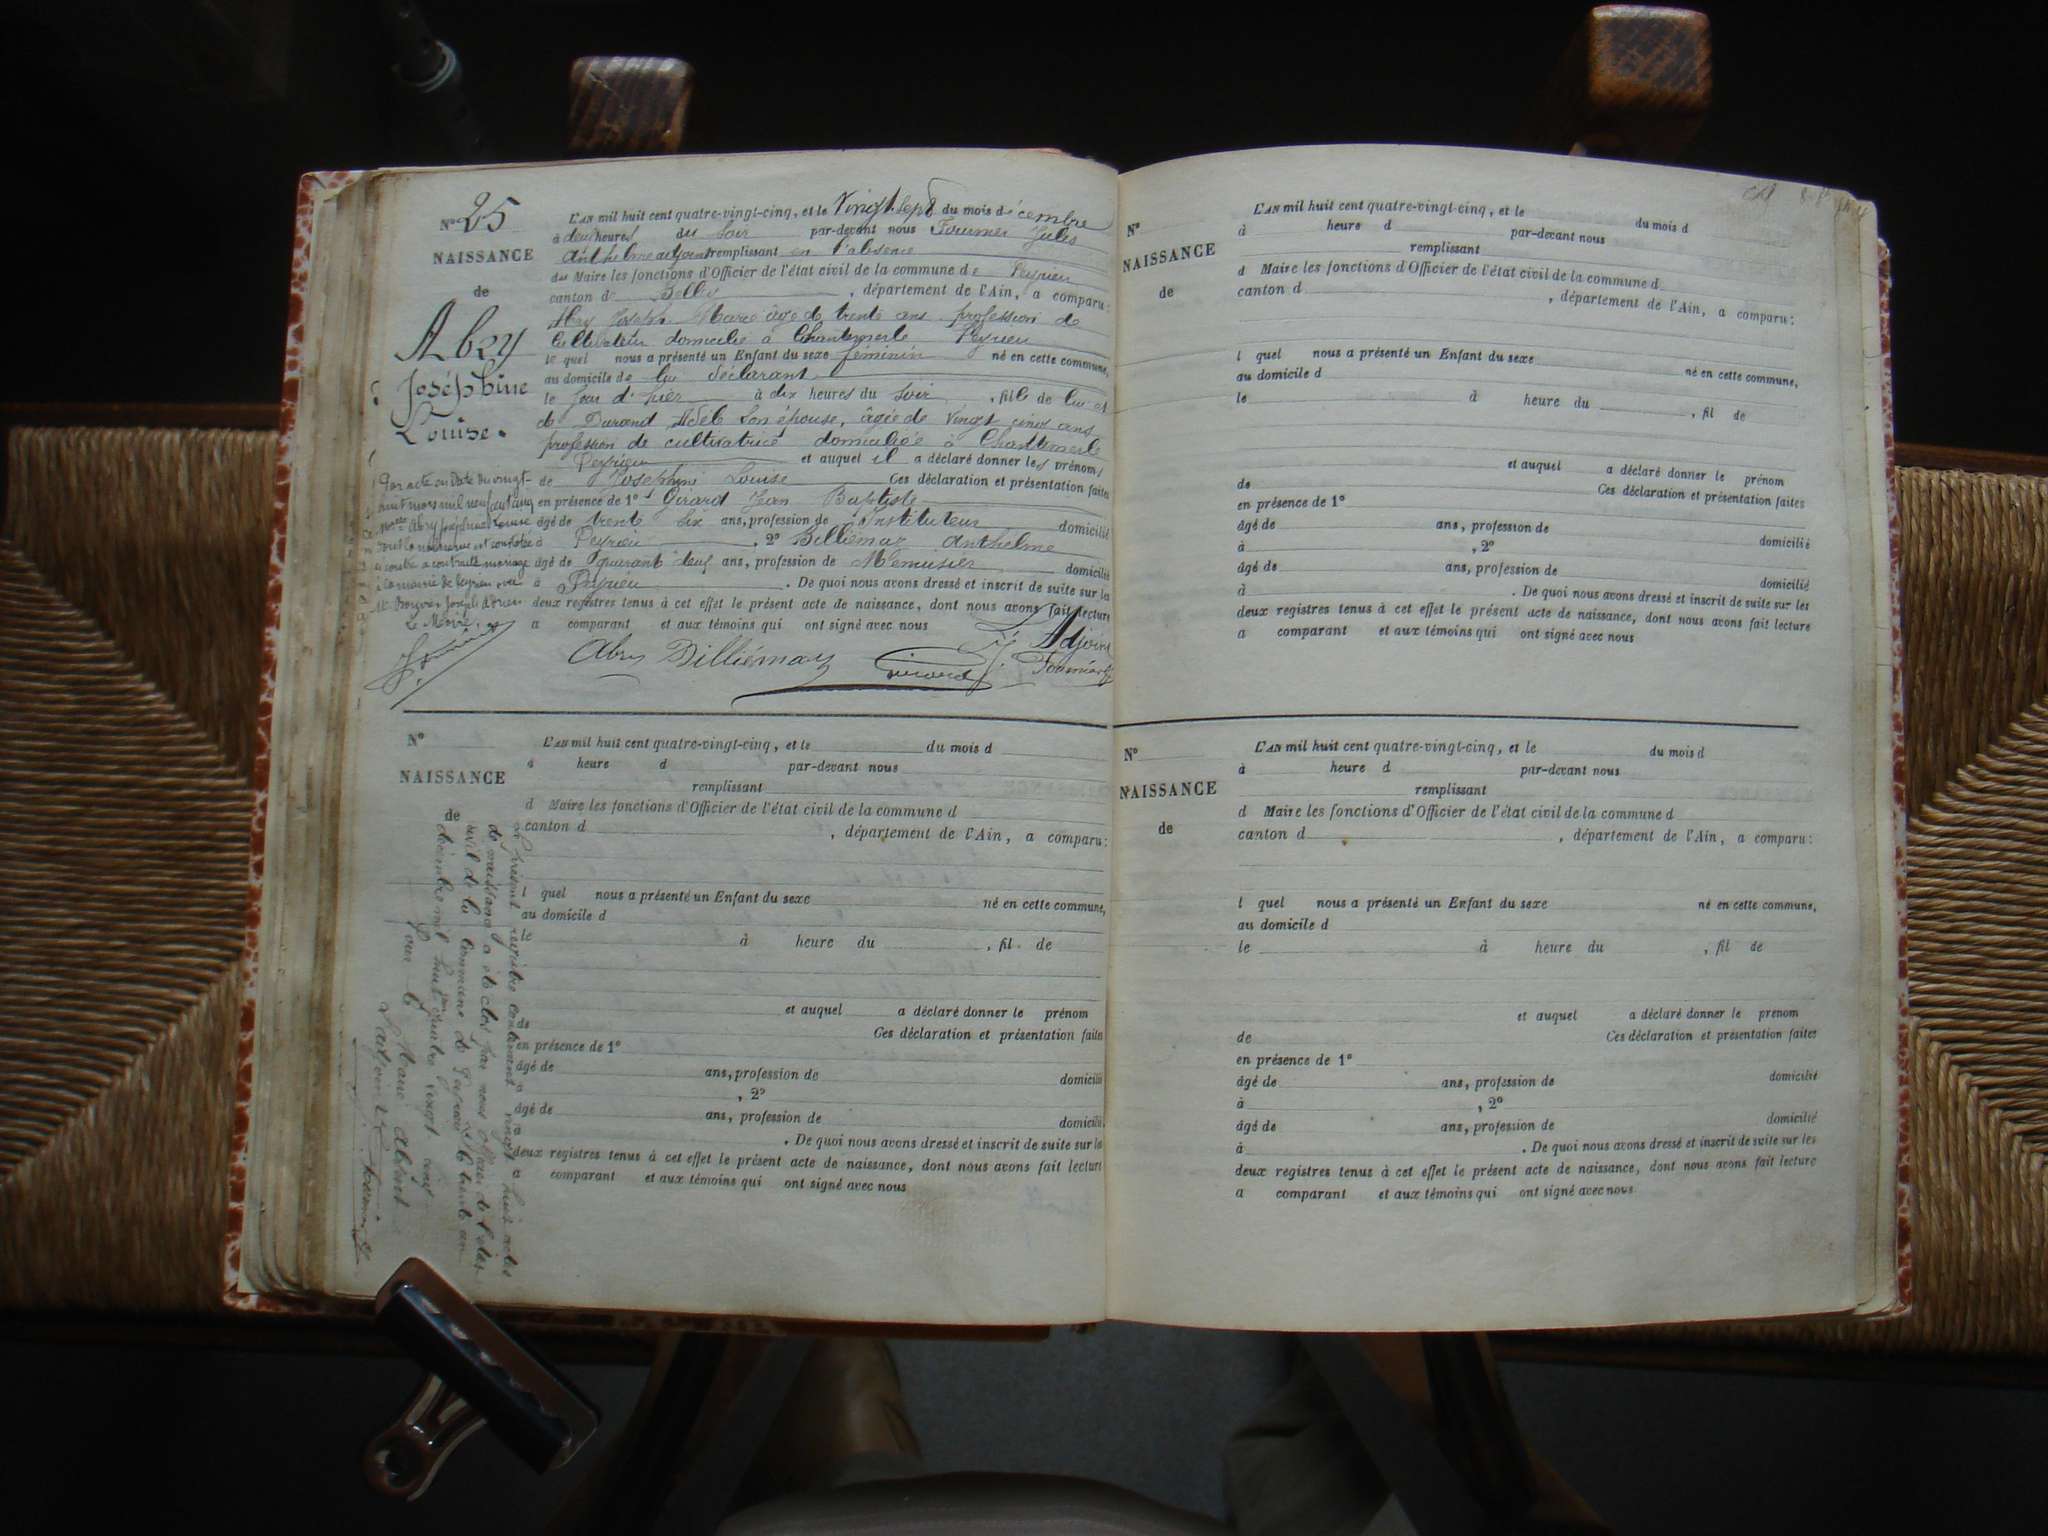 N° 25
NAISSANCE
de
Abry
Joséphine
Louise.
L'AN mil huit cent quatre-vingt-cinq, et le Vingt Sept du mois décembre
à deux heures du Soir par-devant nous Fournier Jules
Anthelme adjoint remplissant en l'absence
du Maire les fonctions d'Officier de l'état civil de la commune de Peyrieu
canton de Belley, département de l'Ain, a comparu:
Abry Joseph Marie âgé de trente ans profession de
Cultivateur domicilié à Chantemerle Peyrieu
le quel nous a présenté un Enfant du sexe féminin né en cette commune,
au domicile de lui déclarant
le jour d'hier à dix heures du soir, fille de lui et
de Durand Adèle son épouse, âgée de Vingt cinq ans
profession de cultivatrice domiciliée à Chantemerle
Peyrieu et auquel il a déclaré donner les prénoms
de Joséphine Louise Ces déclaration et présentation faites
en présence de 1° Girard Jean Baptiste
âgé de trente six ans, profession de Instituteur domicilié
à Peyrieu, 2° Billiémaz Anthelme
âgé de quarant neuf ans, profession de Menuisier domicilié
à Peyrieu. De quoi nous avons dressé et inscrit de suite sur les
deux registres tenus à cet effet le présent acte de naissance, dont nous avons fait lecture
a comparant et aux témoins qui ont signé avec nous
Abry Billiémaz Girard Adjoint
Par acte en date du vingt-
huit mars mil neuf cent cinq
Abry Joséphine Louise
dont la naissance est constatée
ci contre a contracté mariage
à la mairie de Peyrieu avec
Mr Joseph Adrien
Le Maire,
N°
NAISSANCE
de
L'AN mil huit cent quatre-vingt-cinq, et le du mois d
à heure d par-devant nous
remplissant
d Maire les fonctions d'Officier de l'état civil de la commune d
canton d , département de l'Ain, a comparu:
l quel nous a présenté un Enfant du sexe né en cette commune,
au domicile d
le à heure du , fil de
et auquel a déclaré donner le prénom
de Ces déclaration et présentation faites
en présence de 1°
âgé de ans, profession de domicilié
à , 2°
âgé de ans, profession de domicilié
à . De quoi nous avons dressé et inscrit de suite sur les
deux registres tenus à cet effet le présent acte de naissance, dont nous avons fait lecture
a comparant et aux témoins qui ont signé avec nous
Le présent registre contenant vingt huit actes
de naissance a été clos par nous officier de l'état
civil de la commune de Peyrieu le trente un
décembre mil huit cent quatre vingt cinq
Pour le Maire absent
L'adjoint
N°
NAISSANCE
de
L'AN mil huit cent quatre-vingt-cinq, et le du mois d
à heure d par-devant nous
remplissant
d Maire les fonctions d'Officier de l'état civil de la commune d
canton d , département de l'Ain, a comparu:
l quel nous a présenté un Enfant du sexe né en cette commune,
au domicile d
le à heure du , fil de
et auquel a déclaré donner le prénom
de Ces déclaration et présentation faites
en présence de 1°
âgé de ans, profession de domicilié
à , 2°
âgé de ans, profession de domicilié
à . De quoi nous avons dressé et inscrit de suite sur les
deux registres tenus à cet effet le présent acte de naissance, dont nous avons fait lecture
a comparant et aux témoins qui ont signé avec nous
N°
NAISSANCE
de
L'AN mil huit cent quatre-vingt-cinq, et le du mois d
à heure d par-devant nous
remplissant
d Maire les fonctions d'Officier de l'état civil de la commune d
canton d , département de l'Ain, a comparu:
l quel nous a présenté un Enfant du sexe né en cette commune,
au domicile d
le à heure du , fil de
et auquel a déclaré donner le prénom
de Ces déclaration et présentation faites
en présence de 1°
âgé de ans, profession de domicilié
à , 2°
âgé de ans, profession de domicilié
à . De quoi nous avons dressé et inscrit de suite sur les
deux registres tenus à cet effet le présent acte de naissance, dont nous avons fait lecture
a comparant et aux témoins qui ont signé avec nous